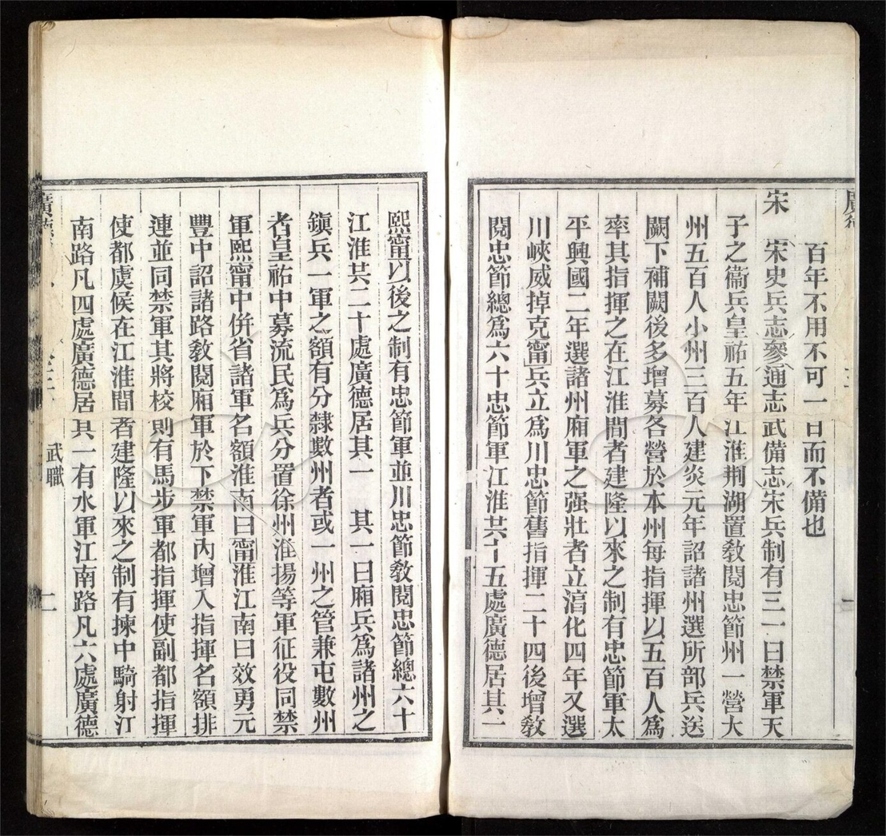 百年不用不可一日而不備也
宋　宋史兵志參通志武備志宋兵制有三一曰禁軍天
子之衞兵皇祐五年江淮荆湖置敎閱忠節州一營大
州五百人小州三百人建炎元年詔諸州選所部兵送
闕下補闕後多增募各營於本州每指揮以五百人爲
率其指揮之在江淮間者建隆以來之制有忠節軍太
平興國二年選諸州廂軍之强壯者立淳化四年又選
川峽威掉克甯兵立爲川忠節舊指揮二十四後增敎
閱忠節總爲六十忠節軍江淮共十五處廣德居其一
熙甯以後之制有忠節軍並川忠節敎閱忠節總六十
江淮共二十處廣德居其一　其一曰廂兵爲諸州之
鎭兵一軍之額有分隸數州者或一州之管兼屯數州
者皇祐中募流民爲兵分置徐州淮揚等軍征役同禁
軍熙甯中併省諸軍名額淮南曰甯淮江南曰效勇元
豐中詔諸路敎閱廂軍於下禁軍內增入指揮名額排
連並同禁軍其將校則有馬步軍都指揮使副都指揮
使都虞候在江淮間者建隆以來之制有揀中騎射江
南路凡四處廣德居其一有水軍江南路凡六處廣德
廣德
武職